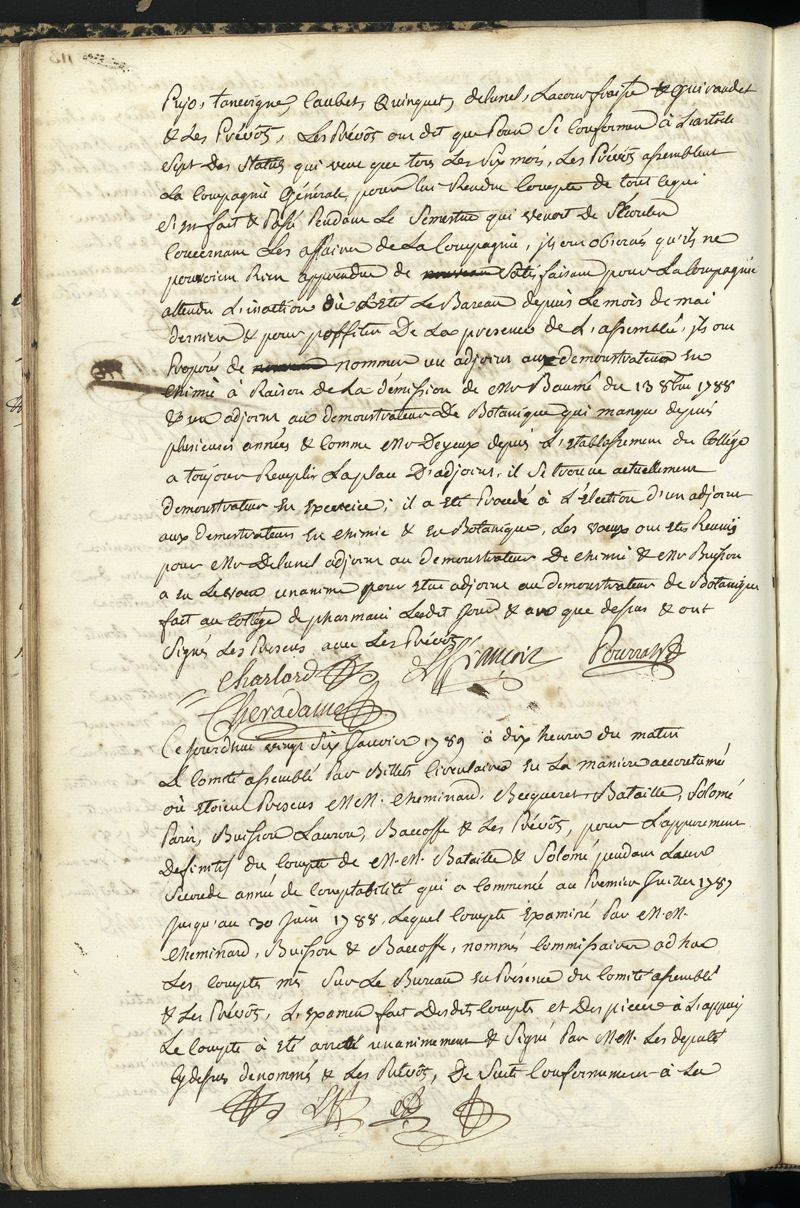 Pujo, tancoigne, Caubet, Quinquet, delunel, Lacour fraise & Guiraudet
& Les Prévôts, Les Prévôts ont dit que Pour Se Conformer à L'article
Sept Des Statuts qui veut que tous Les Six mois, Les Prévôts assemblent
La Compagnie Générale, pour lui Rendre Compte de tout Cequi
S'est fait & Passé Pendant Le Semestre qui venoit de S'écouler
Concernant Les affaires de La Compagnie, ils ont observés qu'ils ne
pouvoient Rien apprendre de Satisfaisant pour La Compagnie
attendu L'inaction où à Eté Le Bureau depuis Le mois de mai
dernier & pour proffiter De La presence de L'assemblée, ils ont
Proposés de nommer un adjoint aux demonstrateurs En
Chimie à Raison de La démission de Mr Baumé du 13 8bre 1788
& un adjoint aux demonstrateurs De Botanique qui manque depuis
plusieurs années & Comme Mr Déyeux depuis L'Etablissement du Collége
a toujours Remplis La place D'adjoint, il Se trouve actuellement
demonstrateur En Exercice; il a Eté Procedé à L'élection d'un adjoint
aux demonstrateurs En chimie & En Botanique, Les voeux ont Etés Reunis
pour Mr Delunel adjoint au demonstrateur De chimie & Mr Buisson
a Eu Le voeu unanime pour Etre adjoint au demonstrateur de Botanique
fait au Collége de pharmacie Lesdit Jour & an que dessus & ont
Signés Les Presens avec Les Prévôts
Charlard François Pourrat
Cheradame
Cejourdhui vingt Six Janvier 1789 à dix heures du matin
Le Comité assemblé Par Billets Circulaires En La maniere accoutumé
où Etoient Presens M.M. Cheminard, Becqueret, Bataille, Solomé
Paris, Buisson Lauron, Bacoffe & Les Prévôts, pour L'appurement
Definitif du Compte de M.M. Bataille & Solomé pendant Leur
Seconde année de Comptabilité qui a Commencé au Premier Juillet 1787
Jusqu'au 30 Juin 1788, Lequel Compte Examiné Par M.M.
Cheminard, Buisson & Bacoffe, nommés Commissaires ad hac
Les Comptes mis Sur Le Bureau En Présence du Comité assemblé
& Les Prévôts, L'Examen fait Desdits Comptes et Des pieces à L'appuy
Le Compte à Eté arreté unanimement & Signé Par M.M. Les deputés
Cydessus denommés & Les Prévôts, De Suite Conformement à La